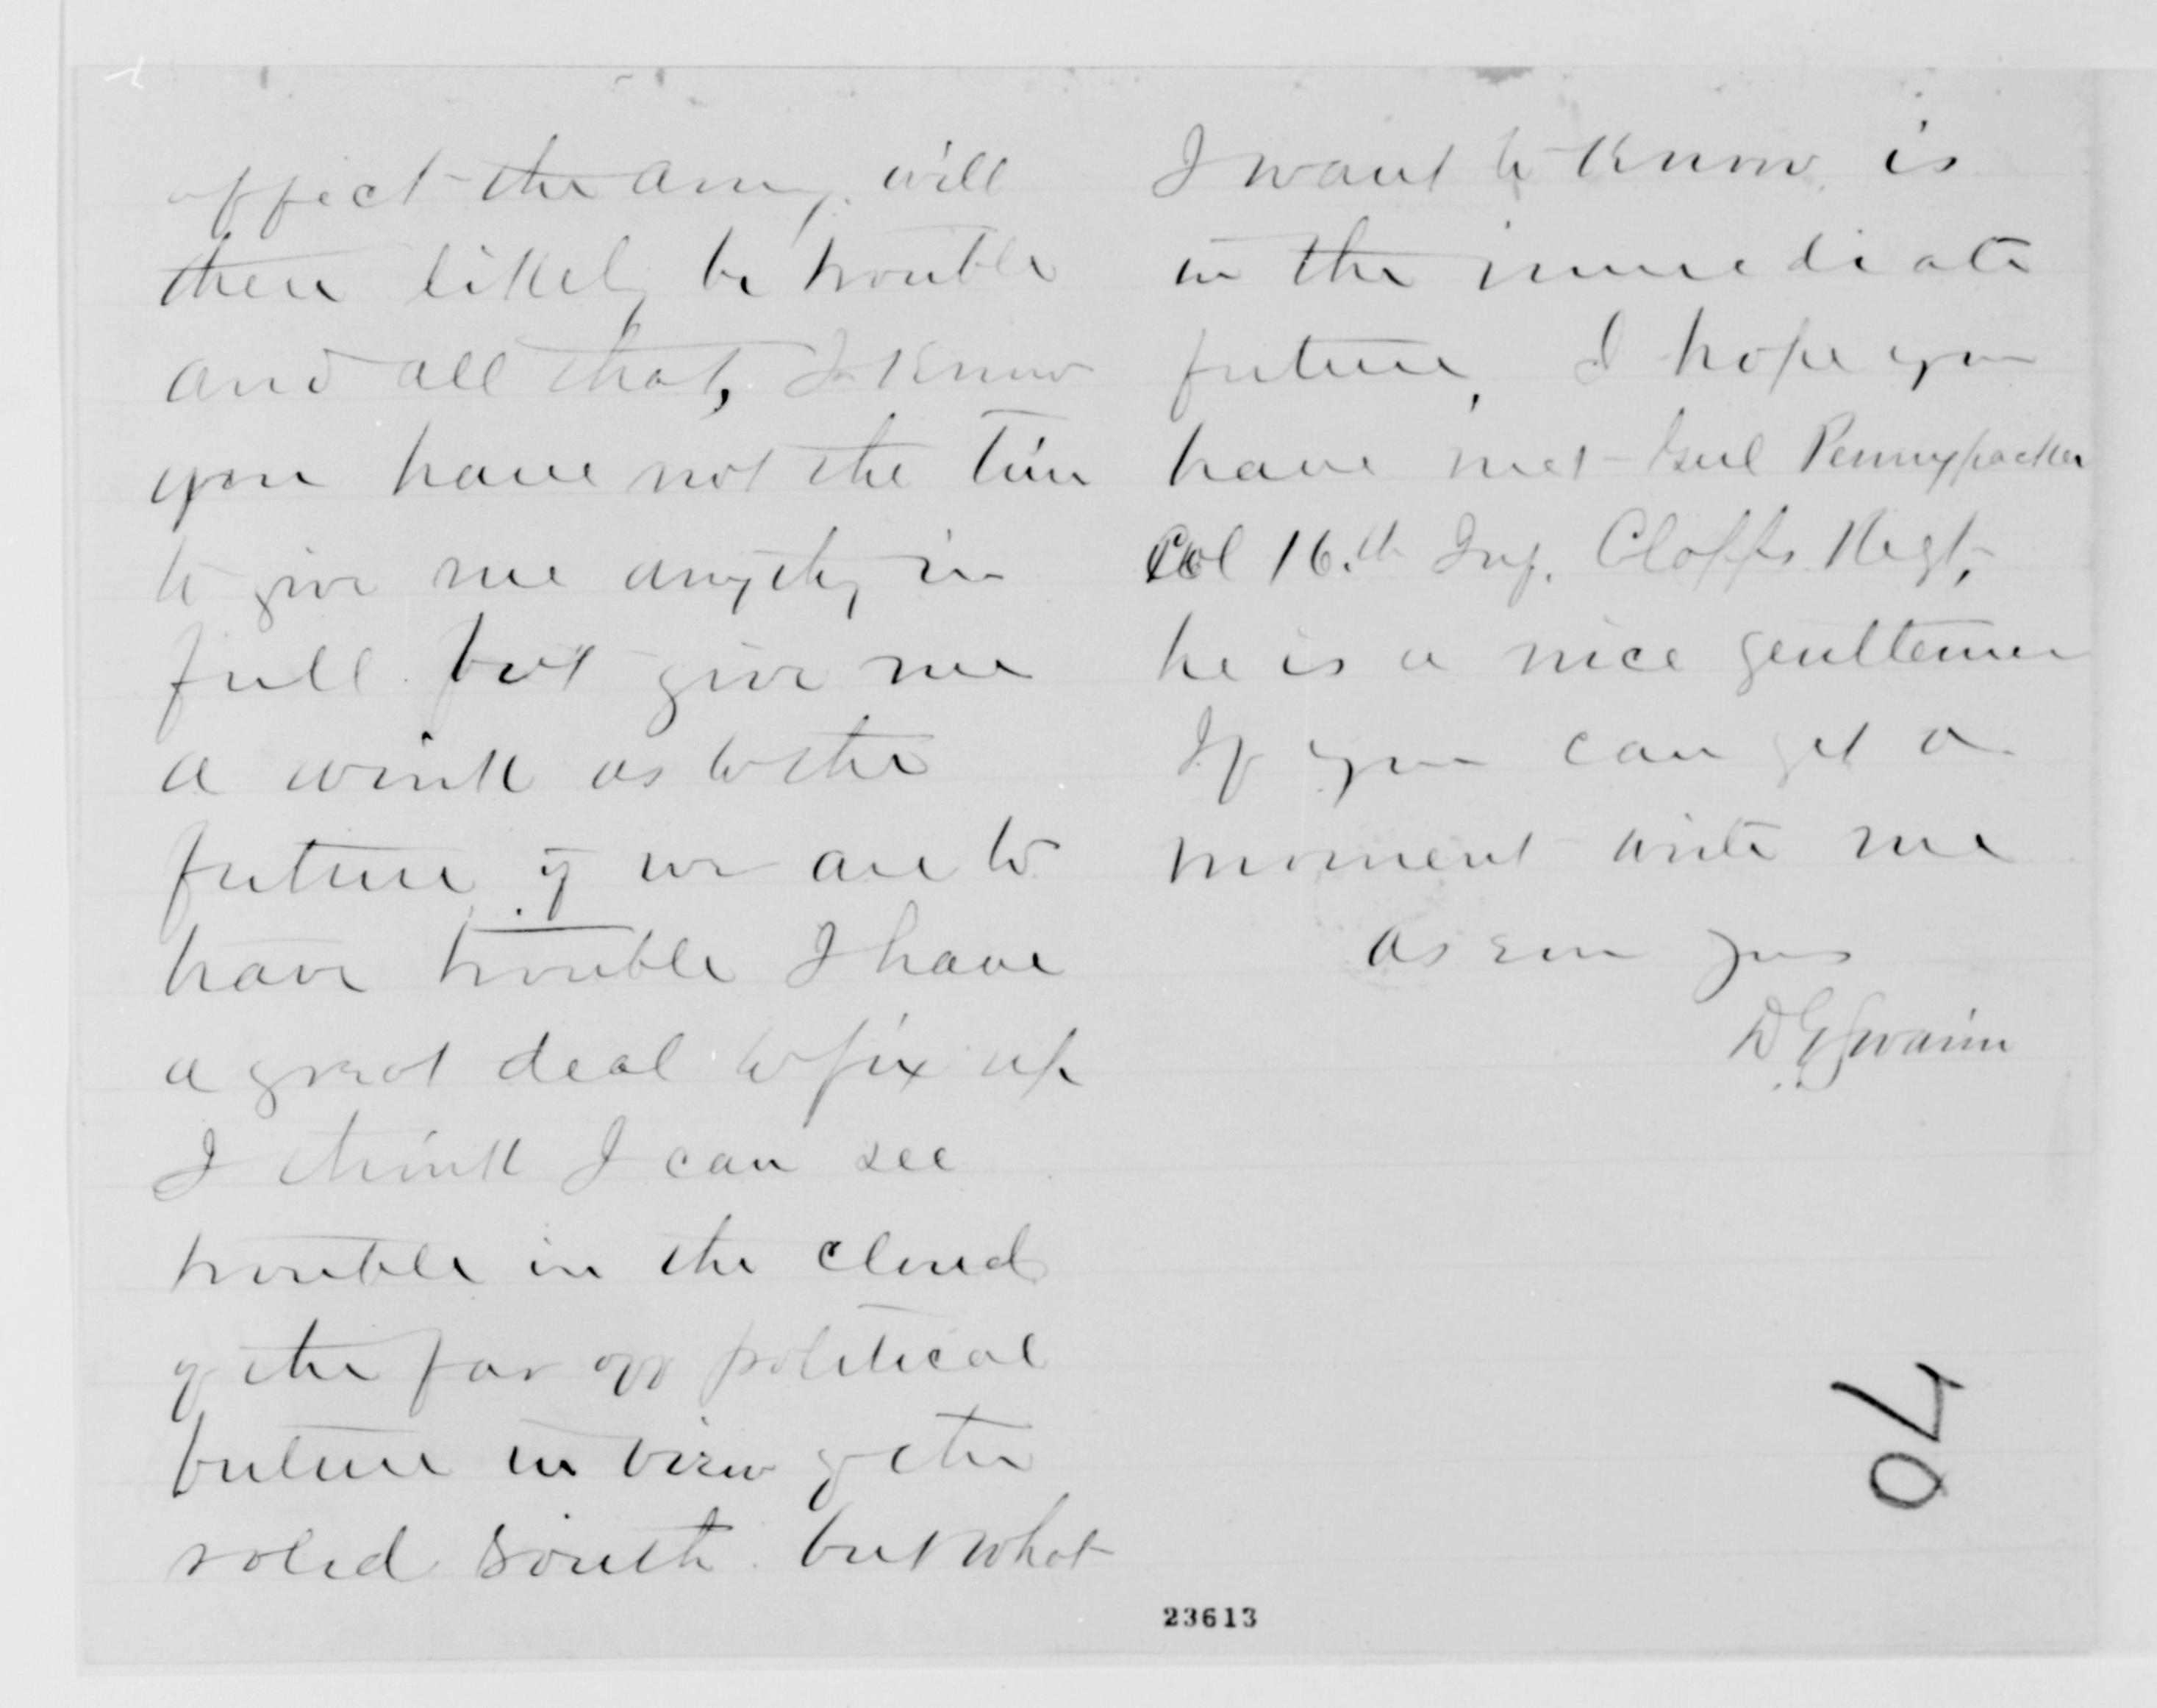 affect the army. will
there likely be trouble
and all that, I know
you have not the time
to give me anything in
full. but give me
a wink as to the
future, if we are to
have trouble I have
a great deal to fix up
I think I can see
trouble in the cloud
of the far off political
future in view of the
solid South. but what
I want to know is
in the immediate
future, I hope you
have met Genl Pennypacker
Col 16.th Inf. Regt,
he is a nice gentlemen
If you can get a
moment write me
as ever yours
D G Swaim
70
23613